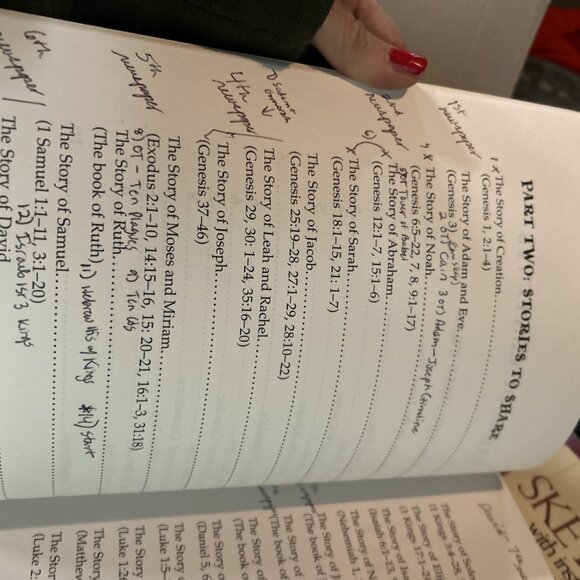 PART TWO: STORIES TO SHARE
1st
newspaper
1 x The Story of Creation
(Genesis 1, 2:1–4)
The Story of Adam and Eve
(Genesis 3)
2 OT) Cain 3 OT) Adam – Joseph
4 x The Story of Noah
(Genesis 6:5–22, 7, 8, 9:1–17)
5 OT Tower of Babel
2nd
newspaper
6) x The Story of Abraham
(Genesis 12:1–7, 15:1–6)
x The Story of Sarah
(Genesis 18:1–15, 21: 1–7)
The Story of Jacob
(Genesis 25:19–28, 27:1–29, 28:10–22)
The Story of Leah and Rachel
(Genesis 29, 30: 1–24, 35:16–20)
4th
newspaper
The Story of Joseph
(Genesis 37–46)
5th
newspaper
The Story of Moses and Miriam
(Exodus 2:1–10, 14:15–16, 15: 20–21, 16:1–3, 31:18)
8) OT – Ten Plagues 9) Ten
The Story of Ruth
(The book of Ruth)
11) Hebrew His of Kings #14) start
The Story of Samuel
(1 Samuel 1:1–11, 3:1–20)
12) Israel 1st 3 Kings
6th
newspaper
The Story of David
SKE
with in
The Story of
(1 Kings 3:4–28,
The Story of
(1 Kings 17–
The Story of
(Isaiah 6:1–13,
The Story of N
(Nehemiah 1,
The Story of
(The book of
The Story of
(The book of
The Story of
(Daniel 5, 6
The Story
(Luke 1:5–
The Story
(Luke 1:2
The Story
(Matthew
The Story
(Luke 2: